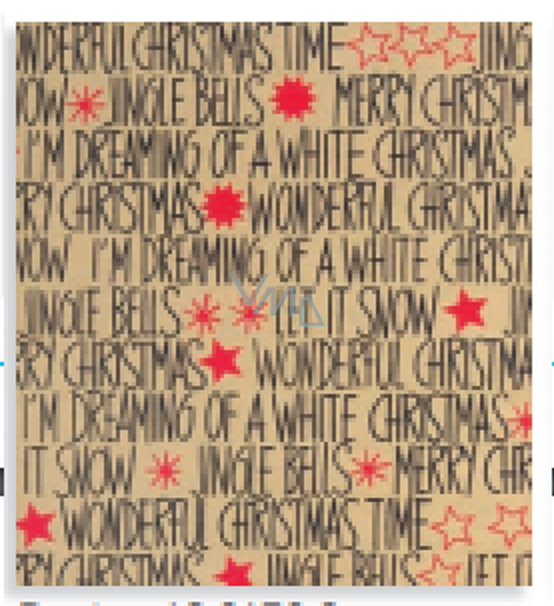 WNDERFUL CHRISTMAS TIME JING
OW JINGLE BELLS MERRY CHRISTM
I'M DREAMING OF A WHITE CHRISTMAS
RY CHRISTMAS WONDERFUL CHRISTMA
NOW I'M DREAMING OF A WHITE CHRISTM
JINGLE BELLS LET IT SNOW JIN
RY CHRISTMAS WONDERFUL CHRISTMA
I'M DREAMING OF A WHITE CHRISTMAS
IT SNOW JINGLE BELLS MERRY CHR
WONDERFUL CHRISTMAS TIME
RY CHRISTMAS JINGLE BELLS LET IT